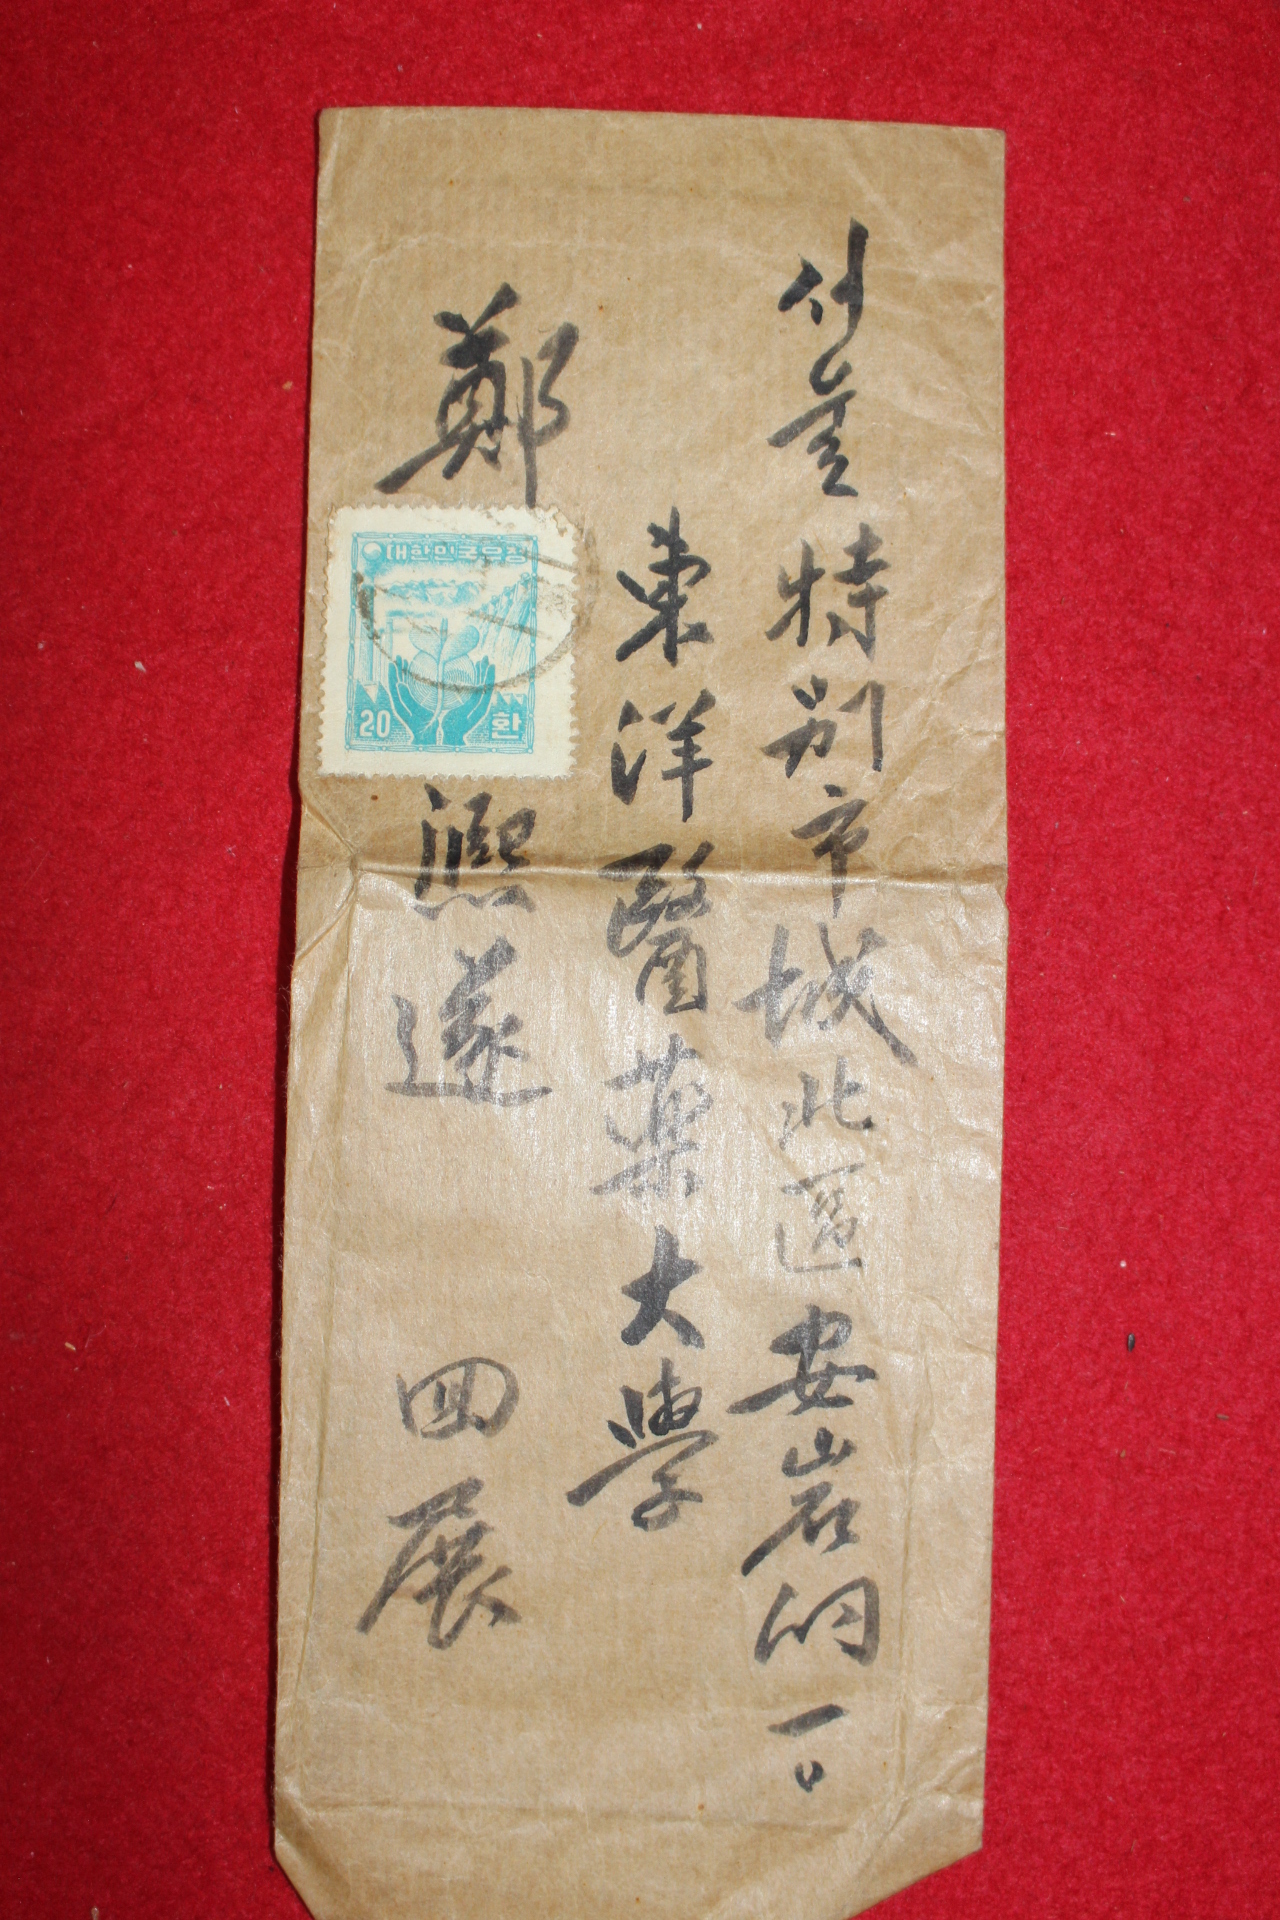 서울特別市城北區安岩洞一口
東洋醫藥大學
鄭熙遂 回展
대한민국우정
20 환